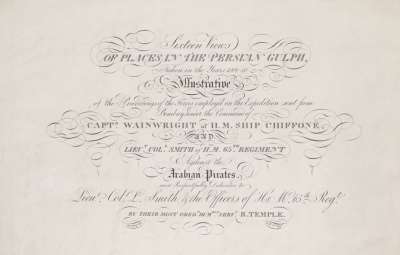 Sixteen Views
OF PLACES IN THE PERSIAN GULPH,
Taken in the Years 1809-10
Illustrative
of the Proceedings of the Forces employed on the Expedition sent from
Bombay under the Command of
CAPT. WAINWRIGHT of H.M. SHIP CHIFFONE,
AND
LIEUT. COLL. SMITH of H.M. 65TH REGIMENT
Against the
Arabian Pirates.
most Respectfully Dedicated to
Lieut. Coll. L. Smith & the Officers of His M. 65th Regt.
BY THEIR MOST OBEDT. HUMBLE SERVT. R. TEMPLE.